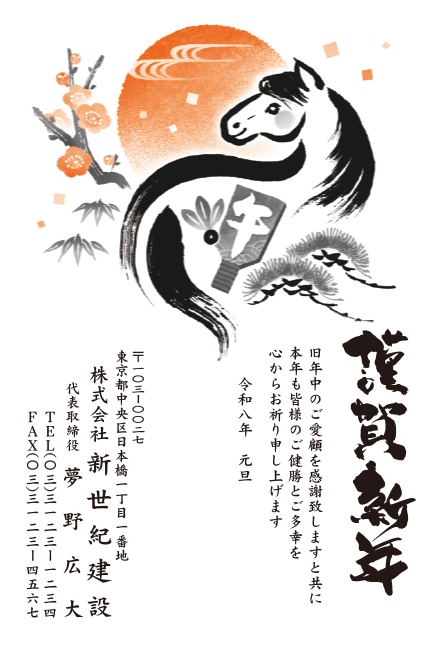 午
謹賀新年
旧年中のご愛顧を感謝致しますと共に
本年も皆様のご健勝とご多幸を
心からお祈り申し上げます
令和八年　元旦
〒一〇三-〇〇二七
東京都中央区日本橋一丁目一番地
株式会社 新世紀建設
代表取締役 夢野広大
TEL(〇三)三一二三-一二三四
FAX(〇三)三一二三-四五六七